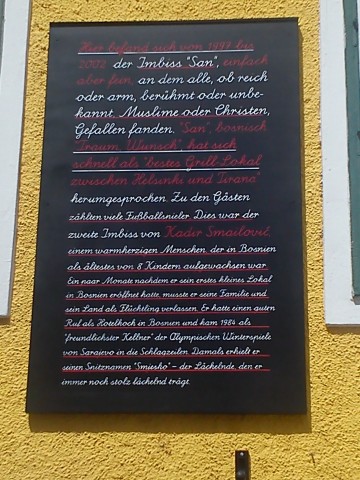 Hier befand sich von 1997 bis
2002 der Imbiss "San", einfach
aber fein, an dem alle, ob reich
oder arm, berühmt oder unbe-
kannt, Muslime oder Christen,
Gefallen fanden. "San", bosnisch
"Traum, Wunsch", hat sich
schnell als "bestes Grill-Lokal
zwischen Helsinki und Tirana"
herumgesprochen. Zu den Gästen
zählten viele Fußballspieler. Dies war der
zweite Imbiss von Kadir Smailović,
einem warmherzigen Menschen, der in Bosnien
als ältestes von 8 Kindern aufgewachsen war.
Ein paar Monate nachdem er sein erstes kleines Lokal
in Bosnien eröffnet hatte, musste er seine Familie und
sein Land als Flüchtling verlassen. Er hatte einen guten
Ruf als Hotelkoch in Bosnien und kam 1984 als
"freundlichster Kellner" der Olympischen Winterspiele
von Sarajevo in die Schlagzeilen. Damals erhielt er
seinen Spitznamen "Smješko" - der Lächelnde, den er
immer noch stolz lächelnd trägt.